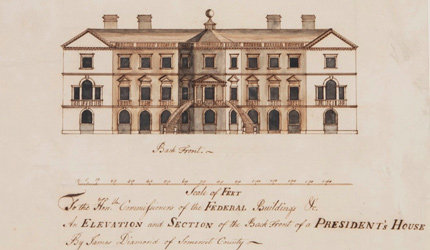 Back Front.
Scale of FEET
To the Hon.ble Commissioners of the FEDERAL Buildings &c
An ELEVATION and SECTION of the Back Front of a PRESIDENT's HOUSE
By James Diamond of Somerset County